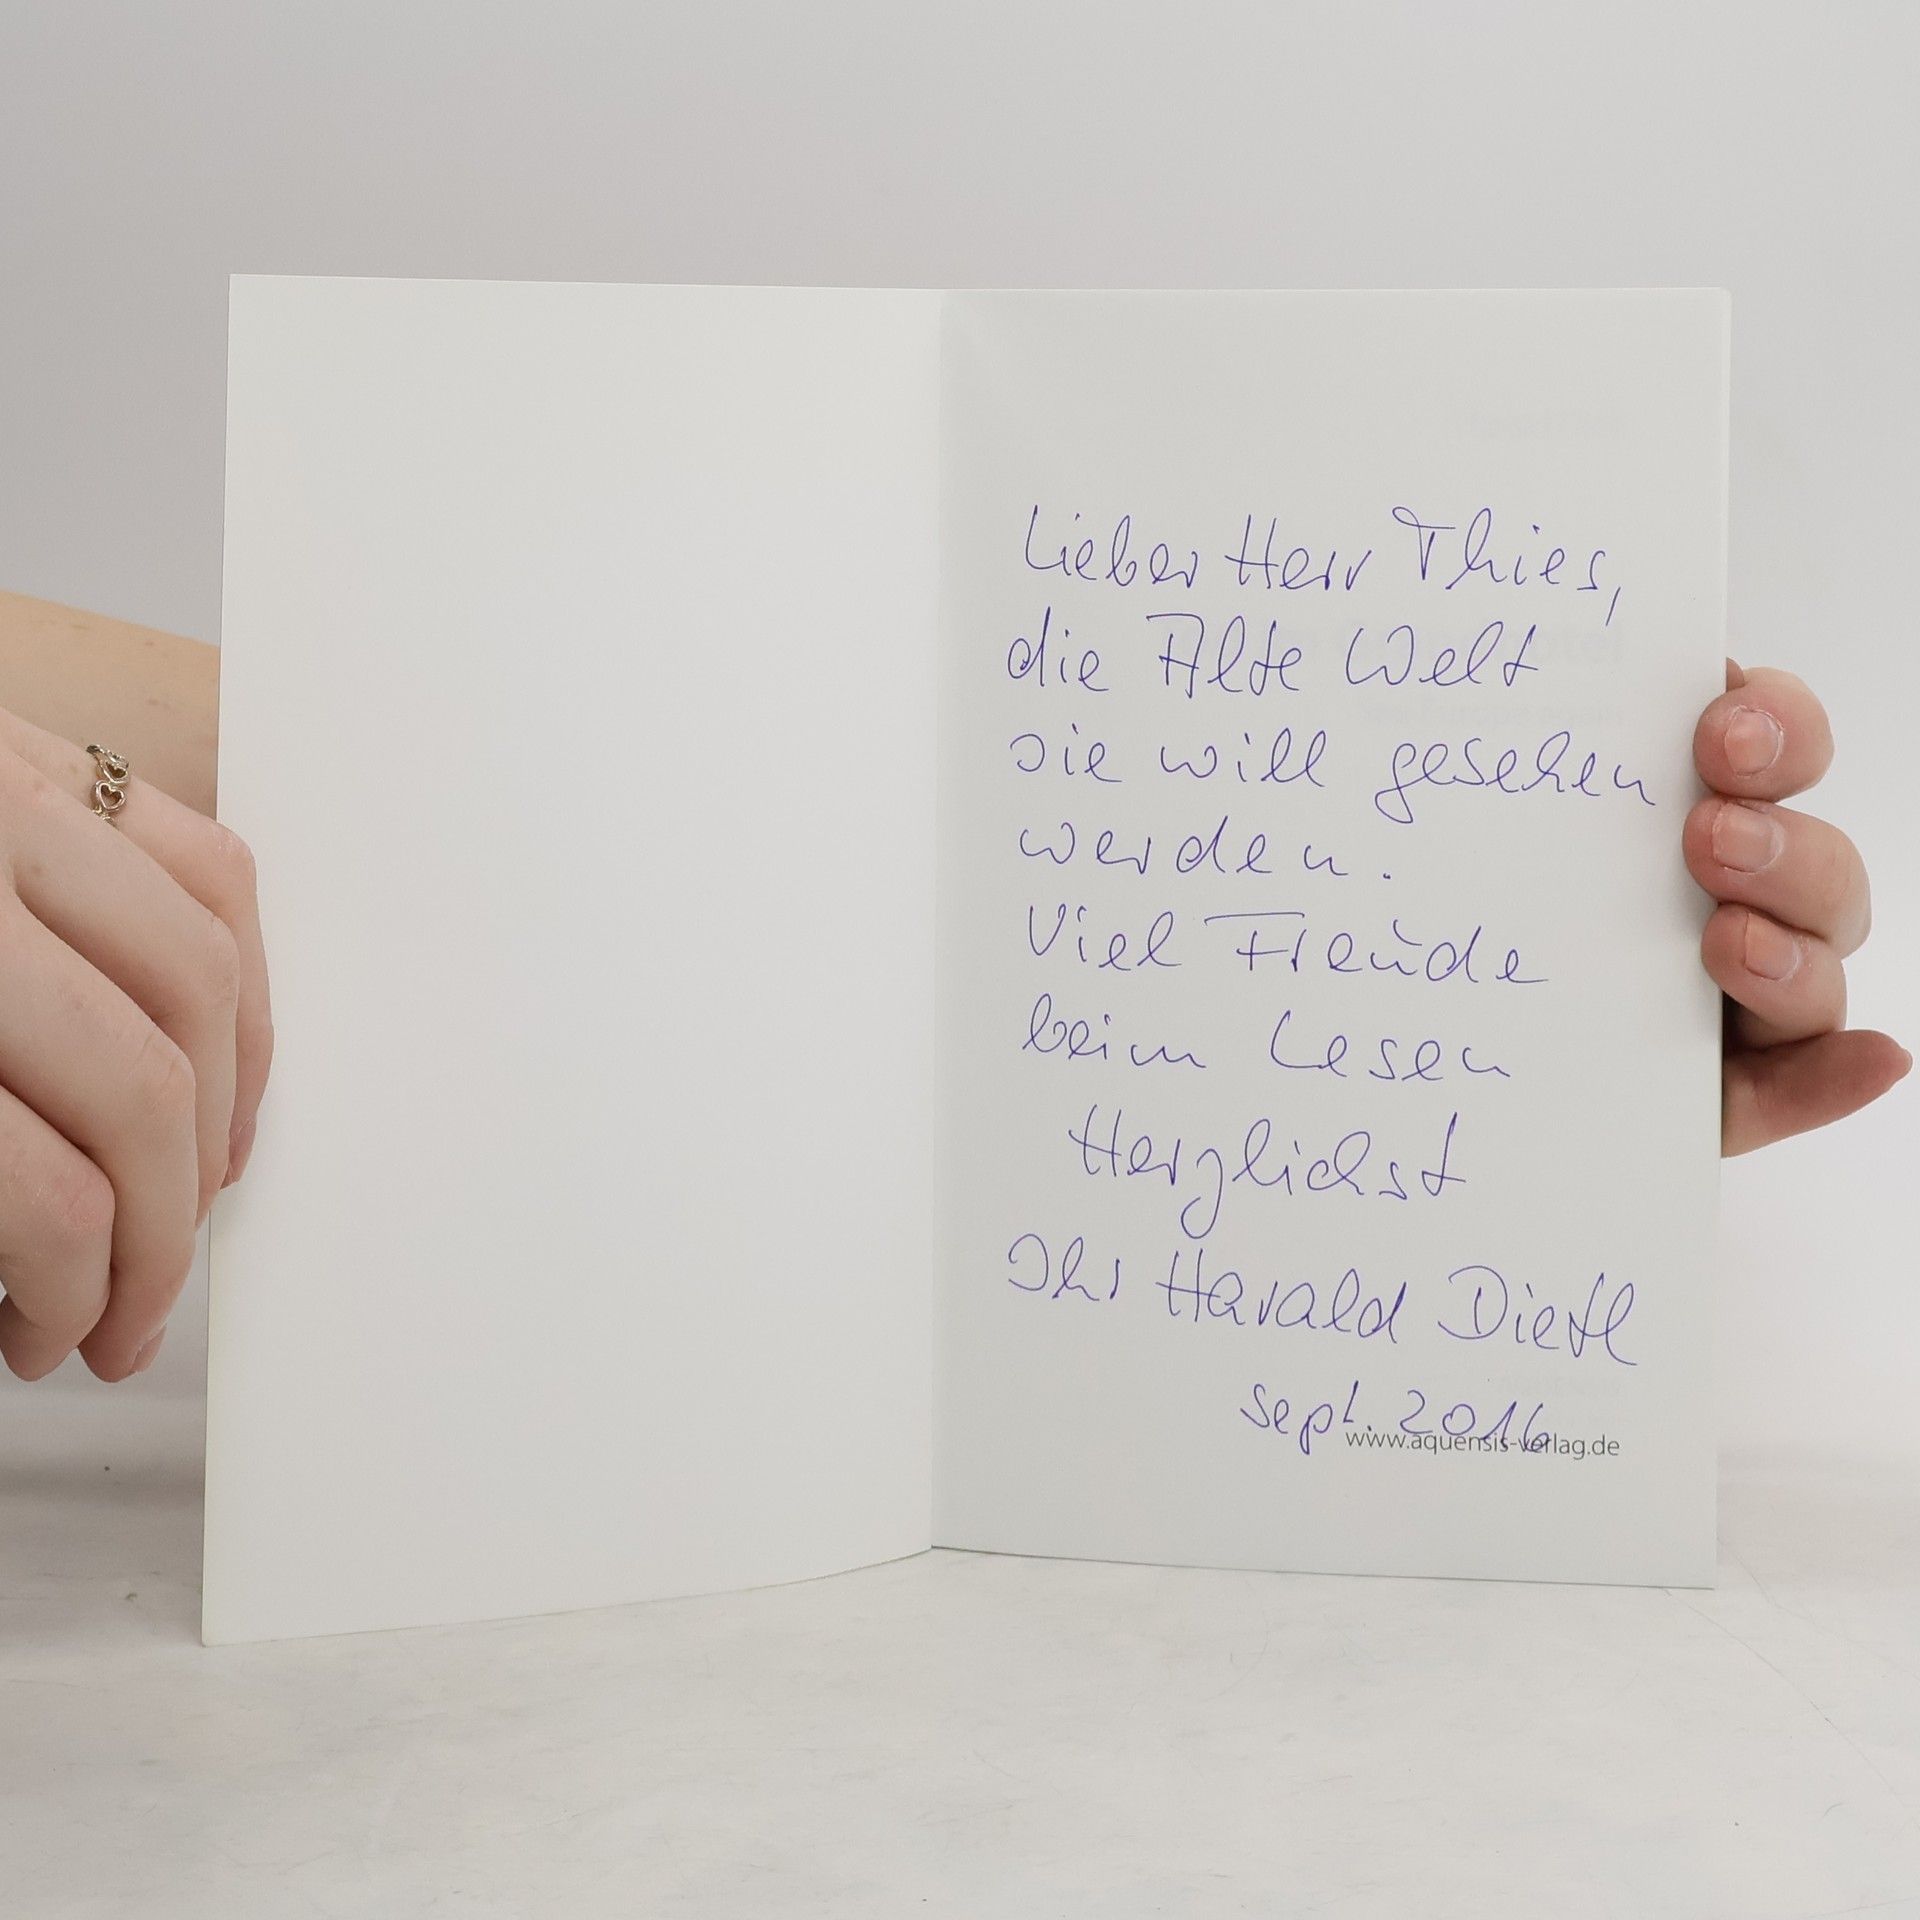 Lieber Herr Thies,
die Alte Welt
sie will gesehen
werden.
Viel Freude
beim Lesen
Herzlichst
Ihr Harald Dietl
Sept. 2016
www.aquensis-verlag.de